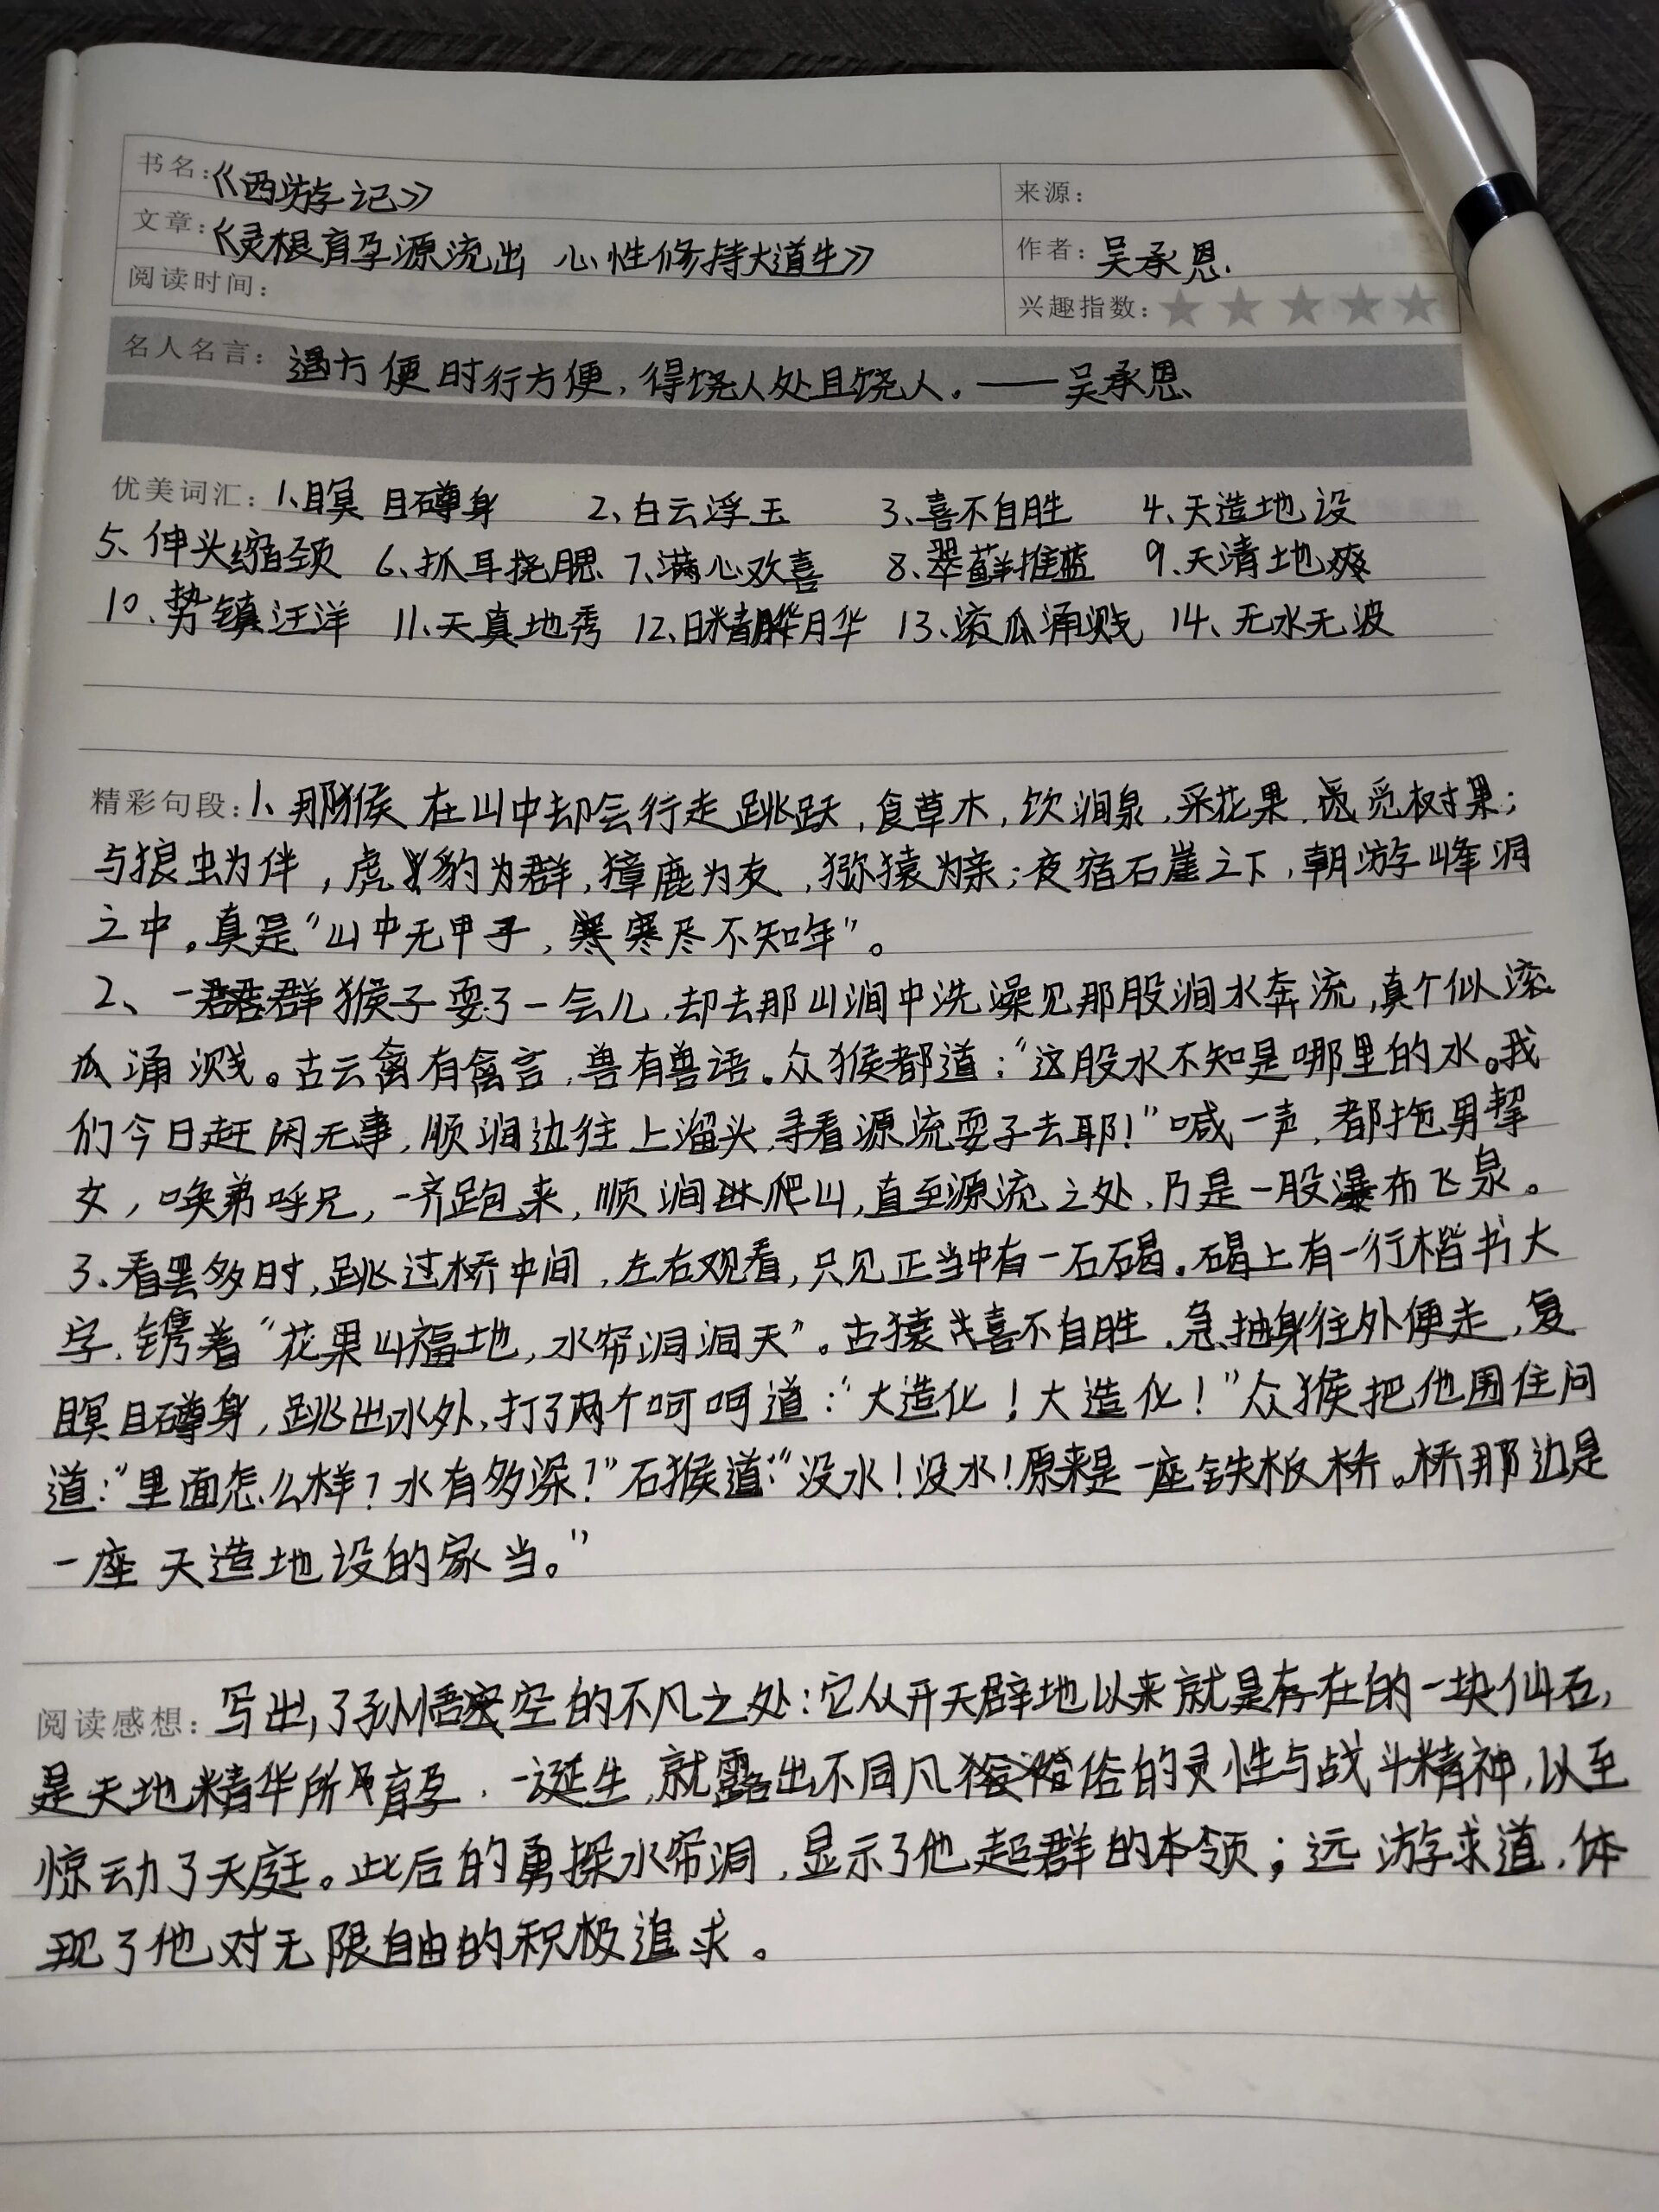 书名：《西游记》
来源：
文章：《灵根育孕源流出 心性修持大道生》
作者：吴承恩.
阅读时间：
兴趣指数：★★★★★
名人名言：遇方便时行方便，得饶人处且饶人。——吴承恩
优美词汇：1、瞑目蹲身 2、白云浮玉 3、喜不自胜 4、天造地设
5、伸头缩颈 6、抓耳挠腮 7、满心欢喜 8、翠藓堆蓝 9、天清地爽
10、势镇汪洋 11、天真地秀 12、日精月华 13、滚瓜涌溅 14、无水无波
精彩句段：1、那猴在山中却会行走跳跃，食草木，饮涧泉，采花果，觅树果；
与狼虫为伴，虎豹为群，獐鹿为友，猕猿为亲；夜宿石崖之下，朝游峰洞
之中。真是“山中无甲子，寒尽不知年”。
2、一群猴子耍了一会儿，却去那山涧中洗澡见那股涧水奔流，真个似滚
瓜涌溅。古云禽有禽言，兽有兽语。众猴都道：“这股水不知是哪里的水。我
们今日赶闲无事，顺涧边往上溜头寻看源流耍子去耶！”喊一声，都拖男挈
女，唤弟呼兄，一齐跑来，顺涧爬山，直至源流之处，乃是一股瀑布飞泉。
3、看罢多时，跳过桥中间，左右观看，只见正当中有一石碣。碣上有一行楷书大
字，镌着“花果山福地，水帘洞洞天”。古猿喜不自胜，急抽身往外便走，复
瞑目蹲身，跳出水外，打了两个呵呵道：“大造化！大造化！”众猴把他围住问
道：“里面怎么样？水有多深？”石猴道：“没水！没水！原来是一座铁板桥。桥那边是
一座天造地设的家当。”
阅读感想：写出了孙悟空的不凡之处：它从开天辟地以来就是存在的一块仙石，
是天地精华所育孕，一诞生，就露出不同凡俗的灵性与战斗精神，以至
惊动了天庭。此后的勇探水帘洞，显示了他超群的本领；远游求道，体
现了他对无限自由的积极追求。